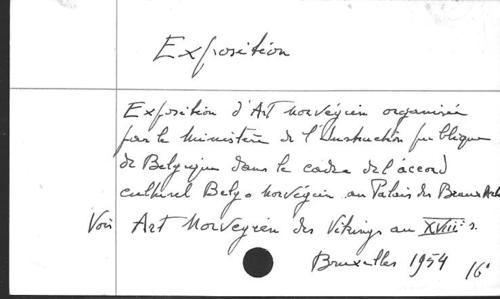 Exposition
Exposition d'Art norvégien organisée
par le Ministère de l'Instruction publique
de Belgique dans le cadre de l'accord
culturel Belgo norvégien au Palais des Beaux Arts
Voir Art Norvégien des Vikings au XVIII: s.
Bruxelles 1954 16°